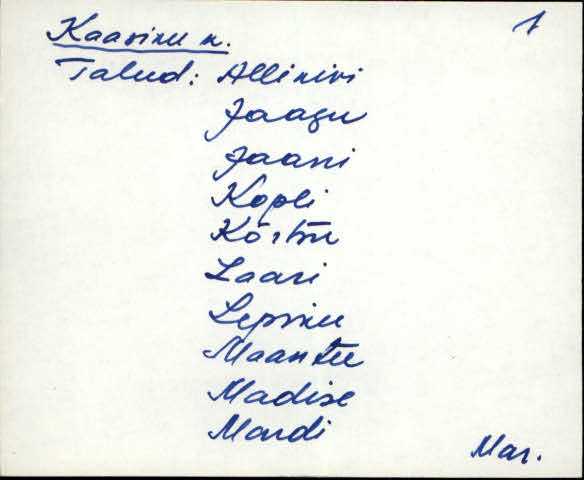 Kaasiku k. 1
Talud: Allikivi
Jaagu
Jaani
Kopli
Kõrtsu
Laari
Lepiku
Maantee
Madise
Mardi
Mar.